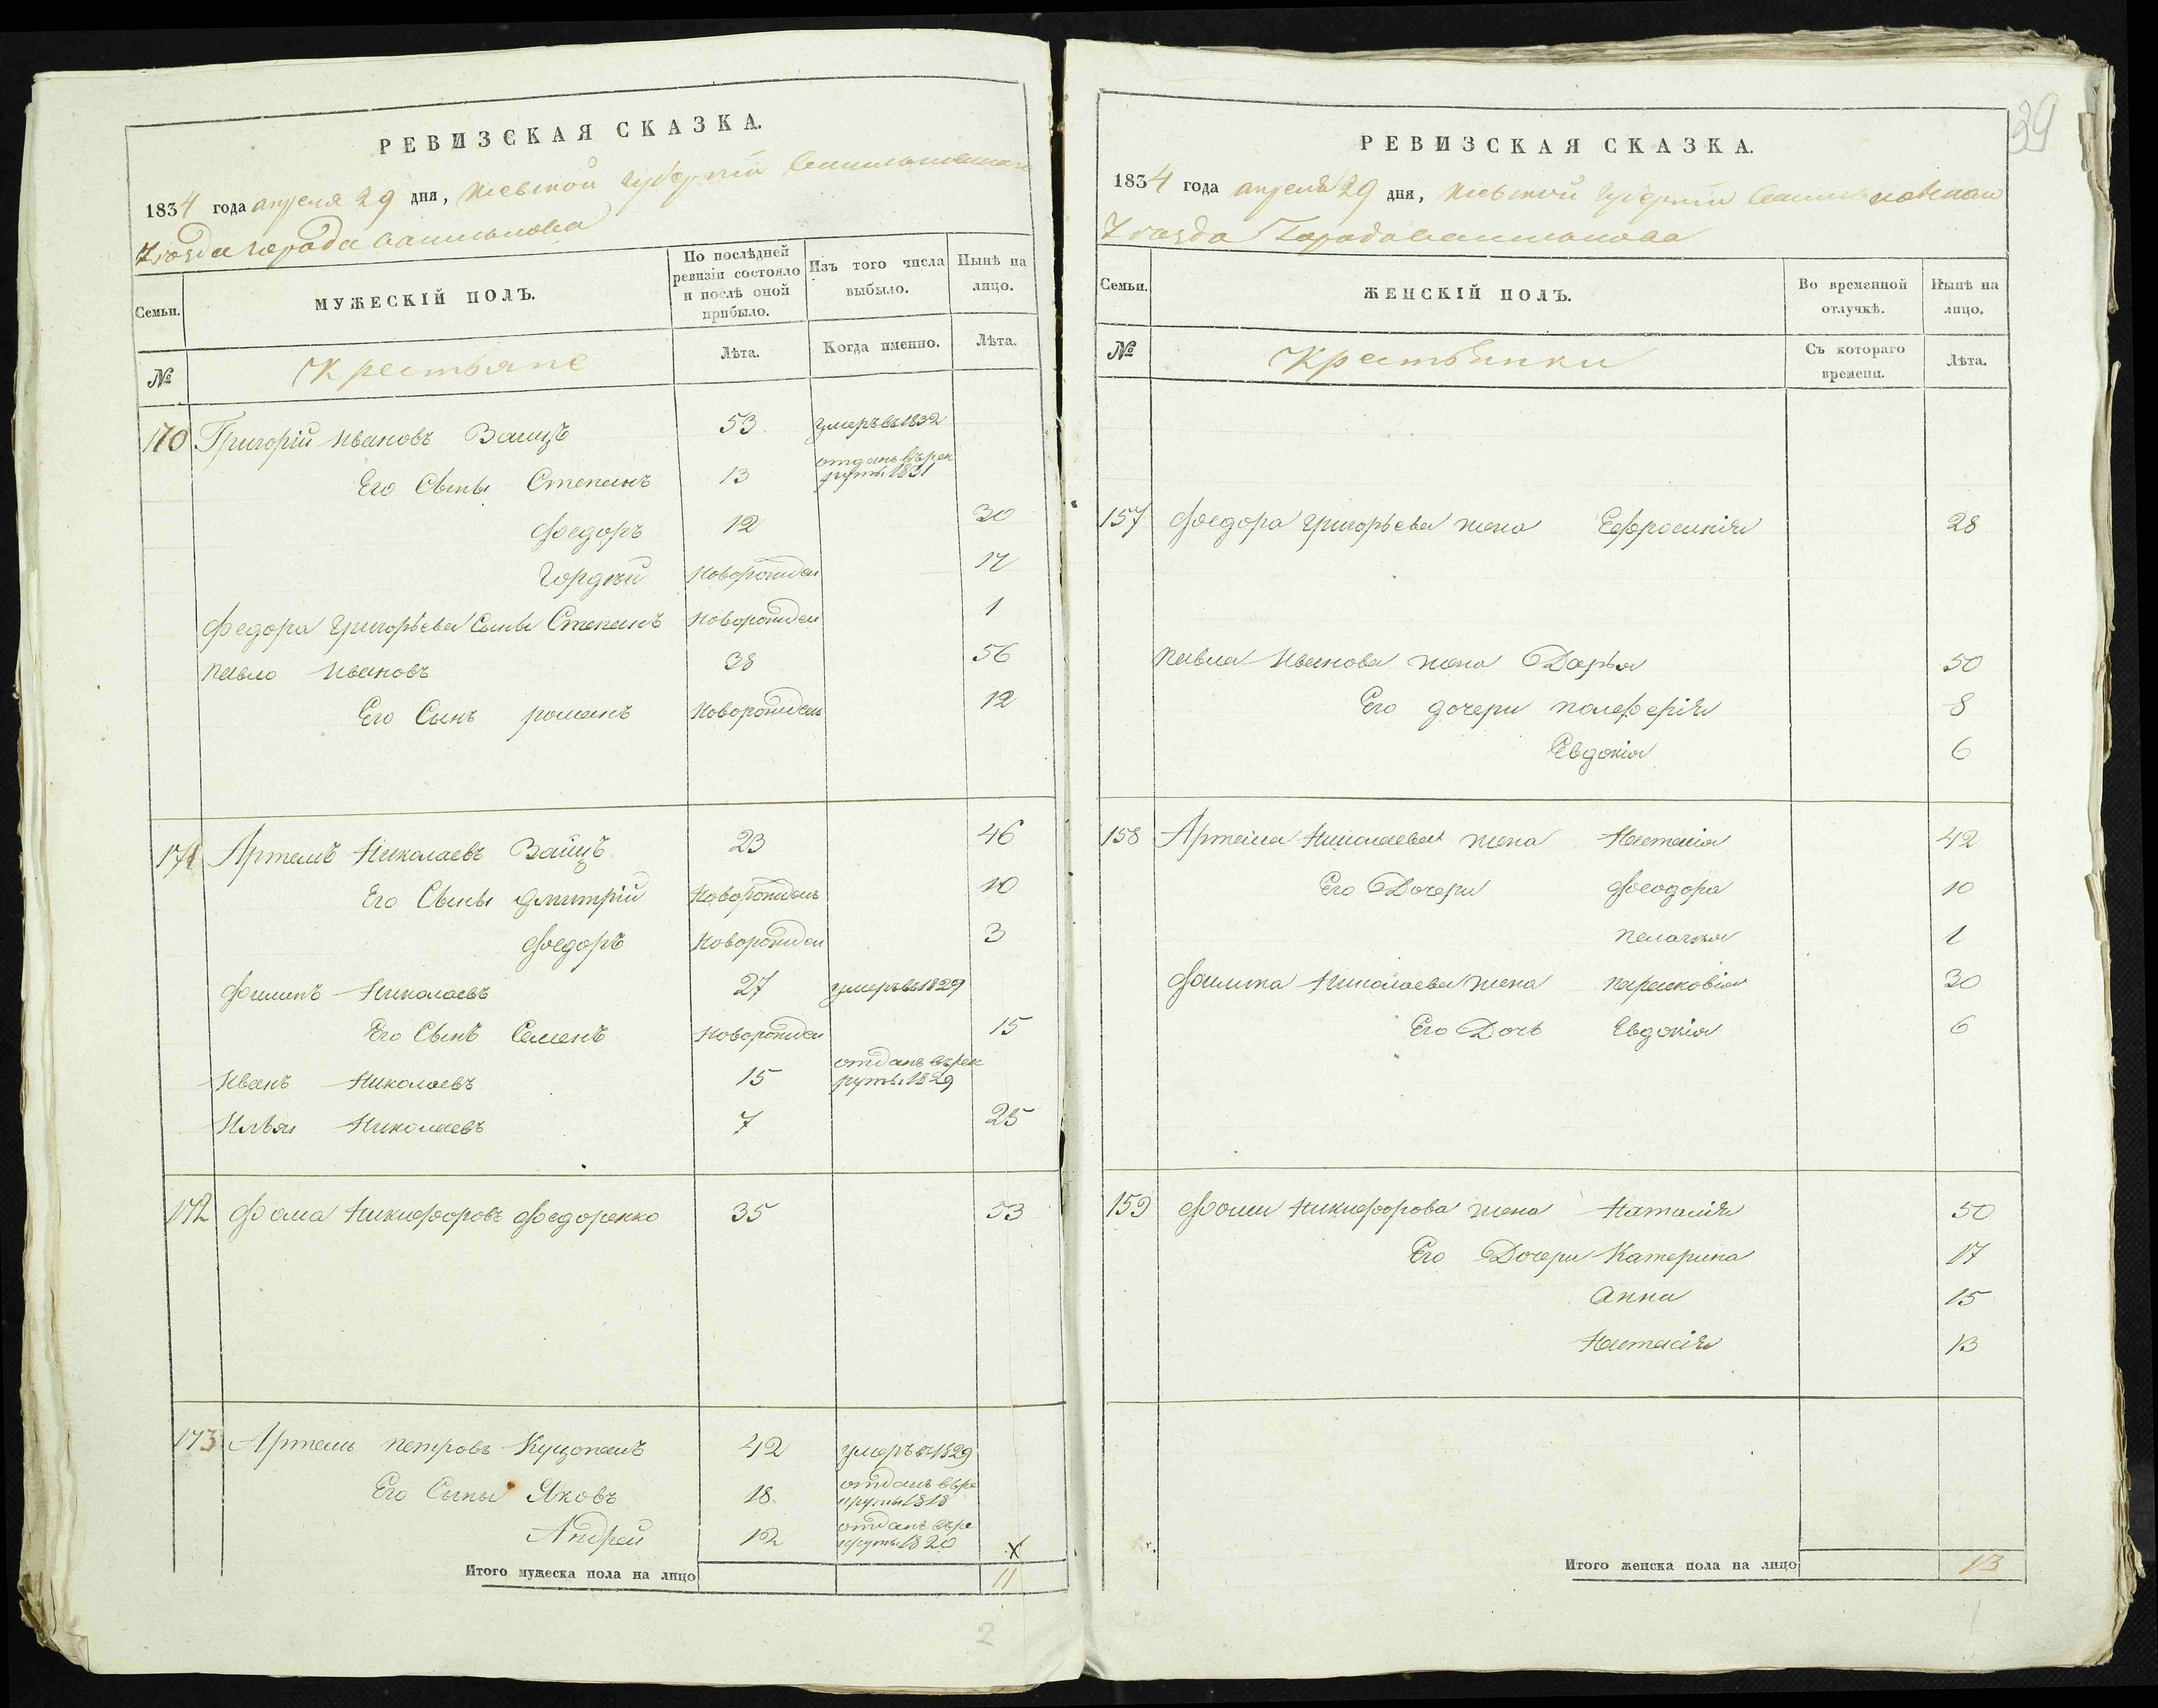 РЕВИЗСКАЯ СКАЗКА.
1834 года апреля 29 дня, Киевской губерніи Васильковскаго
Уѣзда города Василькова
Семьи.
МУЖЕСКІЙ ПОЛЪ.
По послѣдней ревизіи состояло и послѣ оной прибыло.
Изъ того числа выбыло.
Нынѣ на лицо.
№
Крестьяне
Лѣта.
Когда именно.
Лѣта.
170 Григорій Ивановъ Заицъ 53 умеръ въ 1832
Его Сыны Степанъ 13 отданъ въ рек
руты 1831
Федоръ 12 30
Гордѣй Новорожден 17
Федора Григорьева Сынъ Степанъ Новорожден 1
Павло Ивановъ 38 56
Его Сынъ романъ Новорожденъ 12
171 Артемъ Николаевъ Заицъ 23 46
Его Сыны Дмитрій Новорожденъ 10
Федоръ Новорожден 3
Филипъ Николаевъ 27 умеръ въ 1829
Его Сынъ Семенъ Новорожден 15
Иванъ Николаевъ 15 отданъ въ рек
руты 1829
Илья Николаевъ 7 25
172 Фома Никифоровъ Федоренко 35 53
173 Артемъ Петровъ 42 умеръ въ 1829
Его Сыны Яковъ 18 отданъ въ ре
круты 1818
Андрей 12 отданъ въ ре
круты 1820 х
Итого мужеска пола на лицо 11
2
39
РЕВИЗСКАЯ СКАЗКА.
1834 года апреля 29 дня, Киевской Губерніи Васильковскаго
Уѣзда Города Василькова
Семьи.
ЖЕНСКІЙ ПОЛЪ.
Во временной отлучкѣ.
Нынѣ на лицо.
№
Крестьянки
Съ котораго времени.
Лѣта.
157 Федора Григорьева жена Ефросинія 28
Павла Иванова жена Дарья 50
Его дочери 8
Евдокія 6
158 Артема Николаева жена Настасія 42
Его Дочери Феодора 10
Пелагея 1
Филипа Николаева жена Парасковія 30
Его Дочь Евдокія 6
159 Фомы Никифорова жена Наталія 50
Его Дочери Катерина 17
Анна 15
Настасія 13
Итого женска пола на лицо 13
1